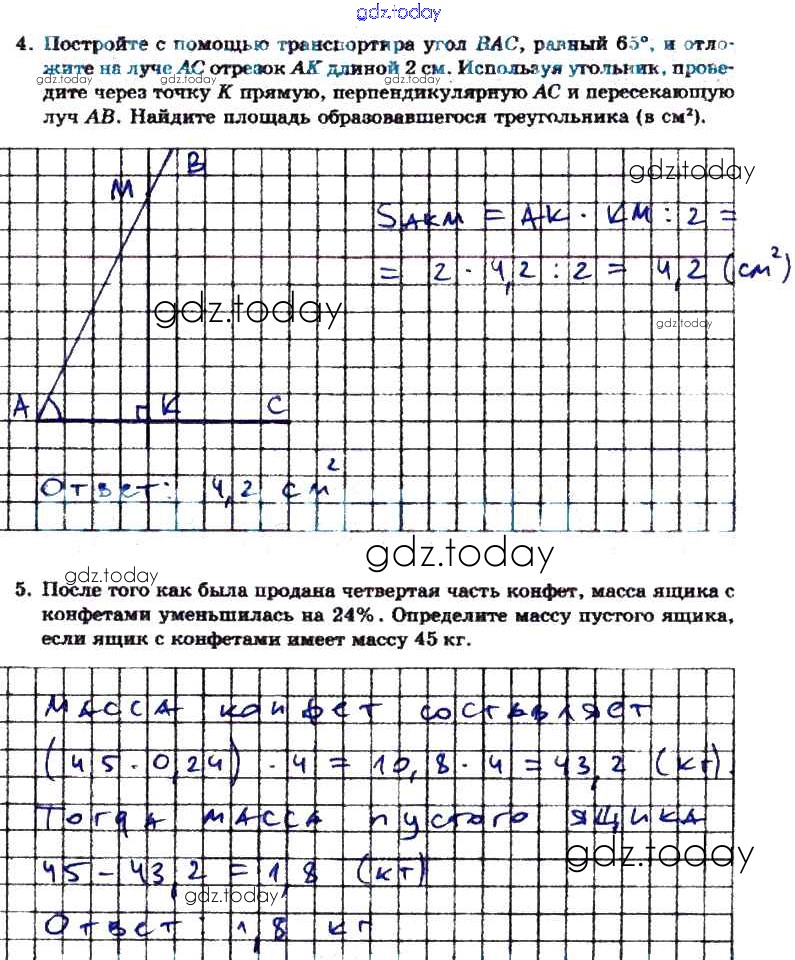 gdz.today
4. Постройте с помощью транспортира угол BAC, равный 65°, и отло-
жите на луче AC отрезок AK длиной 2 см. Используя угольник, прове-
gdz.today gdz.today gdz.today
дите через точку K прямую, перпендикулярную AC и пересекающую
луч AB. Найдите площадь образовавшегося треугольника (в см²).
B
M
gdz.today
S AKM = AK · KM : 2 =
= 2 · 4,2 : 2 = 4,2 (см²)
gdz.today
gdz.today
A K C
Ответ: 4,2 см²
gdz.today
gdz.today
5. После того как была продана четвертая часть конфет, масса ящика с
конфетами уменьшилась на 24%. Определите массу пустого ящика,
если ящик с конфетами имеет массу 45 кг.
Масса конфет составляет
(45 · 0,24) · 4 = 10,8 · 4 = 43,2 (кг).
Тогда масса пустого ящика
gdz.today
45 - 43,2 = 1,8 (кг)
gdz.today
Ответ: 1,8 кг